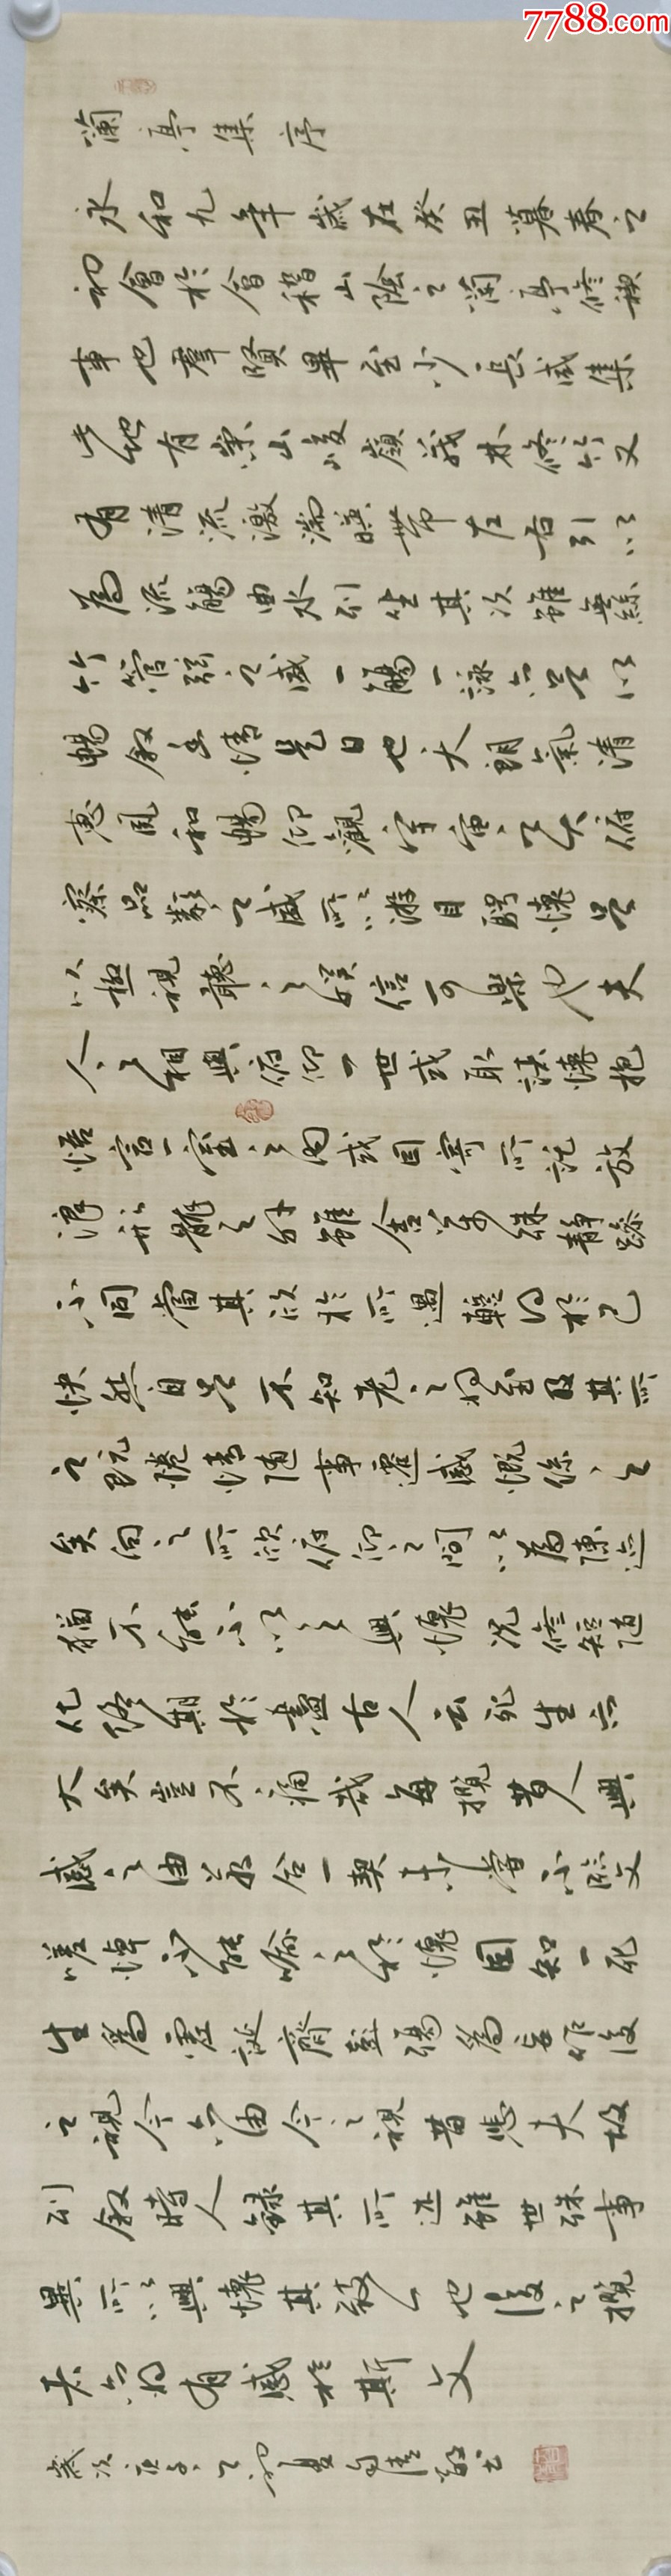 7788.com
蘭亭集序
永和九年歲在癸丑暮春之
初會於會稽山陰之蘭亭修禊
事也羣賢畢至少長咸集
此地有崇山峻嶺茂林修竹又
有清流激湍映帶左右引以
為流觴曲水列坐其次雖無絲
竹管弦之盛一觴一詠亦足以
暢敘幽情是日也天朗氣清
惠風和暢仰觀宇宙之大俯
察品類之盛所以游目騁懷足
以極視聽之娛信可樂也夫
人之相與俯仰一世或取諸懷抱
悟言一室之內或因寄所託放
浪形骸之外雖舍萬殊靜躁
不同當其欣於所遇蹔得於己
快然自足不知老之將至及其所
之既惓情隨事遷感慨係之
矣向之所欣俯仰之間以為陳迹
猶不能不以之興懷況修短隨
化終期於盡古人云死生亦
大矣豈不痛哉每攬昔人興
感之由若合一契未嘗不臨文
嗟悼不能喻之於懷固知一死
生為虛誕齊彭殤為妄作後
之視今亦由今之視昔悲夫故
列敘時人錄其所述雖世殊事
異所以興懷其致一也後之攬
者亦將有感於斯文
歲次庚子之初夏書